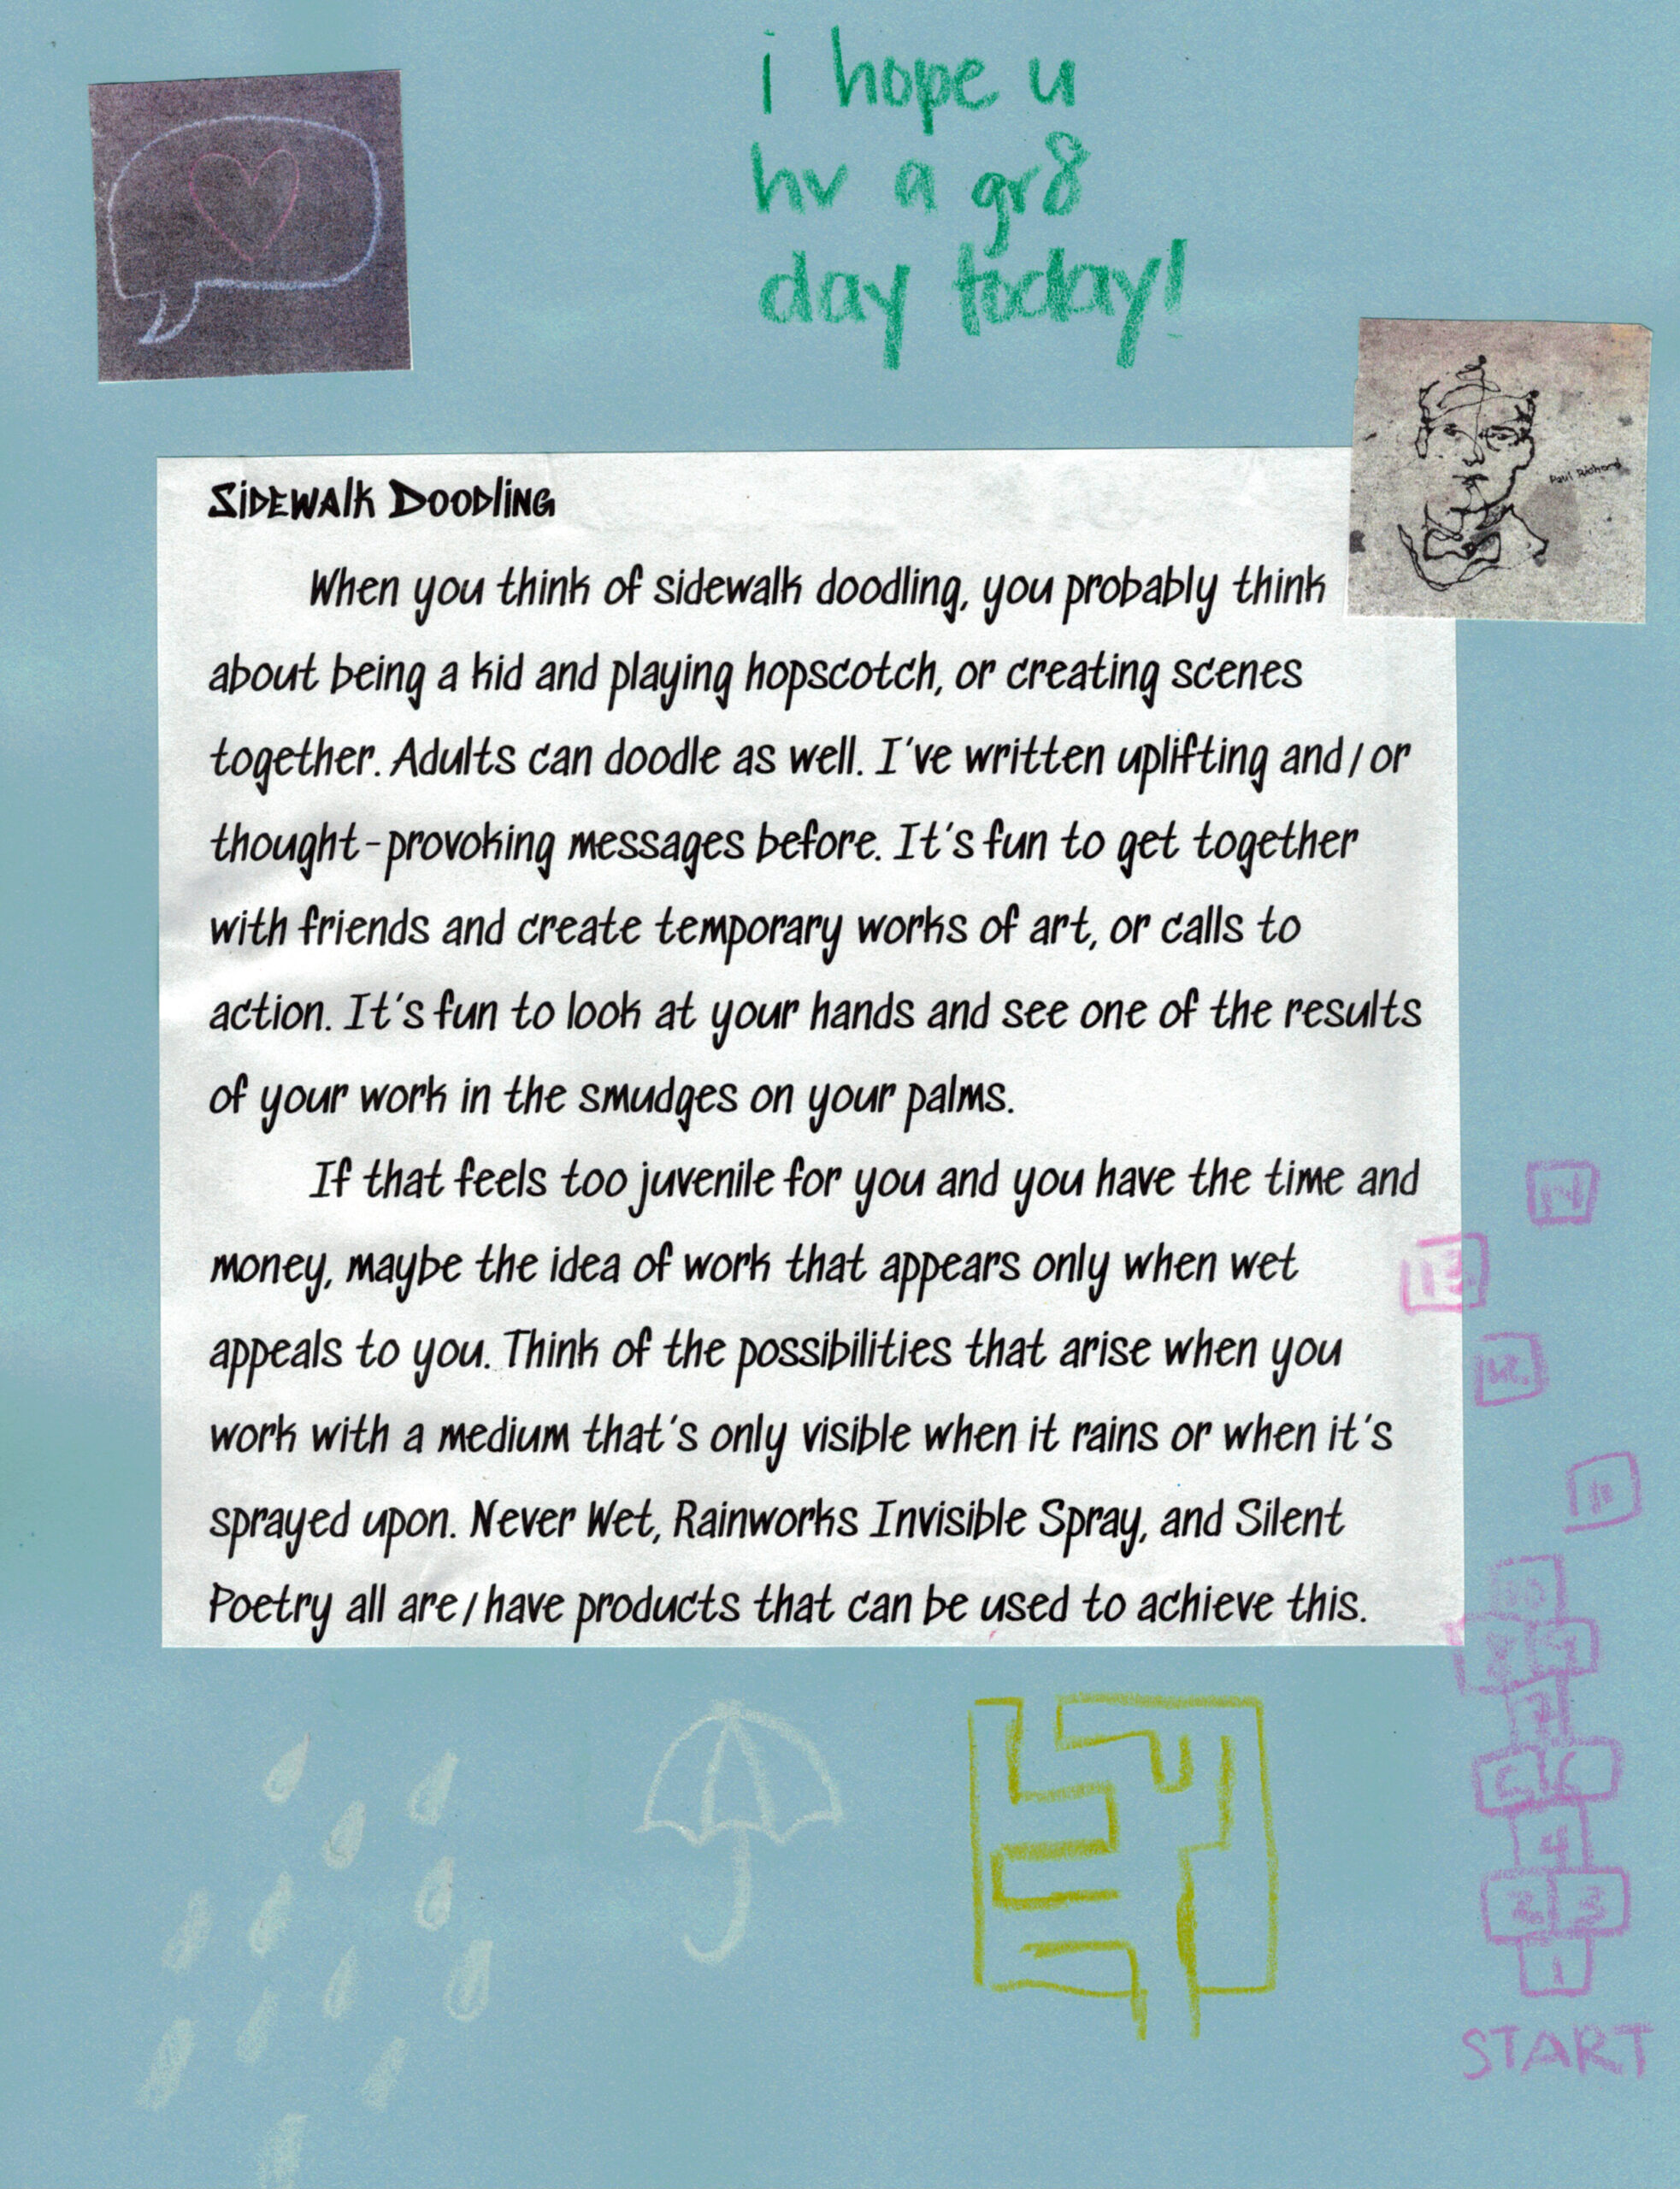 i hope u
hv a gr8
day today!
Paul Richard
Sidewalk Doodling
When you think of sidewalk doodling, you probably think
about being a kid and playing hopscotch, or creating scenes
together. Adults can doodle as well. I've written uplifting and/or
thought-provoking messages before. It's fun to get together
with friends and create temporary works of art, or calls to
action. It's fun to look at your hands and see one of the results
of your work in the smudges on your palms.
If that feels too juvenile for you and you have the time and
money, maybe the idea of work that appears only when wet
appeals to you. Think of the possibilities that arise when you
work with a medium that's only visible when it rains or when it's
sprayed upon. Never Wet, Rainworks Invisible Spray, and Silent
Poetry all are/have products that can be used to achieve this.
N
11
10
8 9
7
5 6
4
2 3
1
START